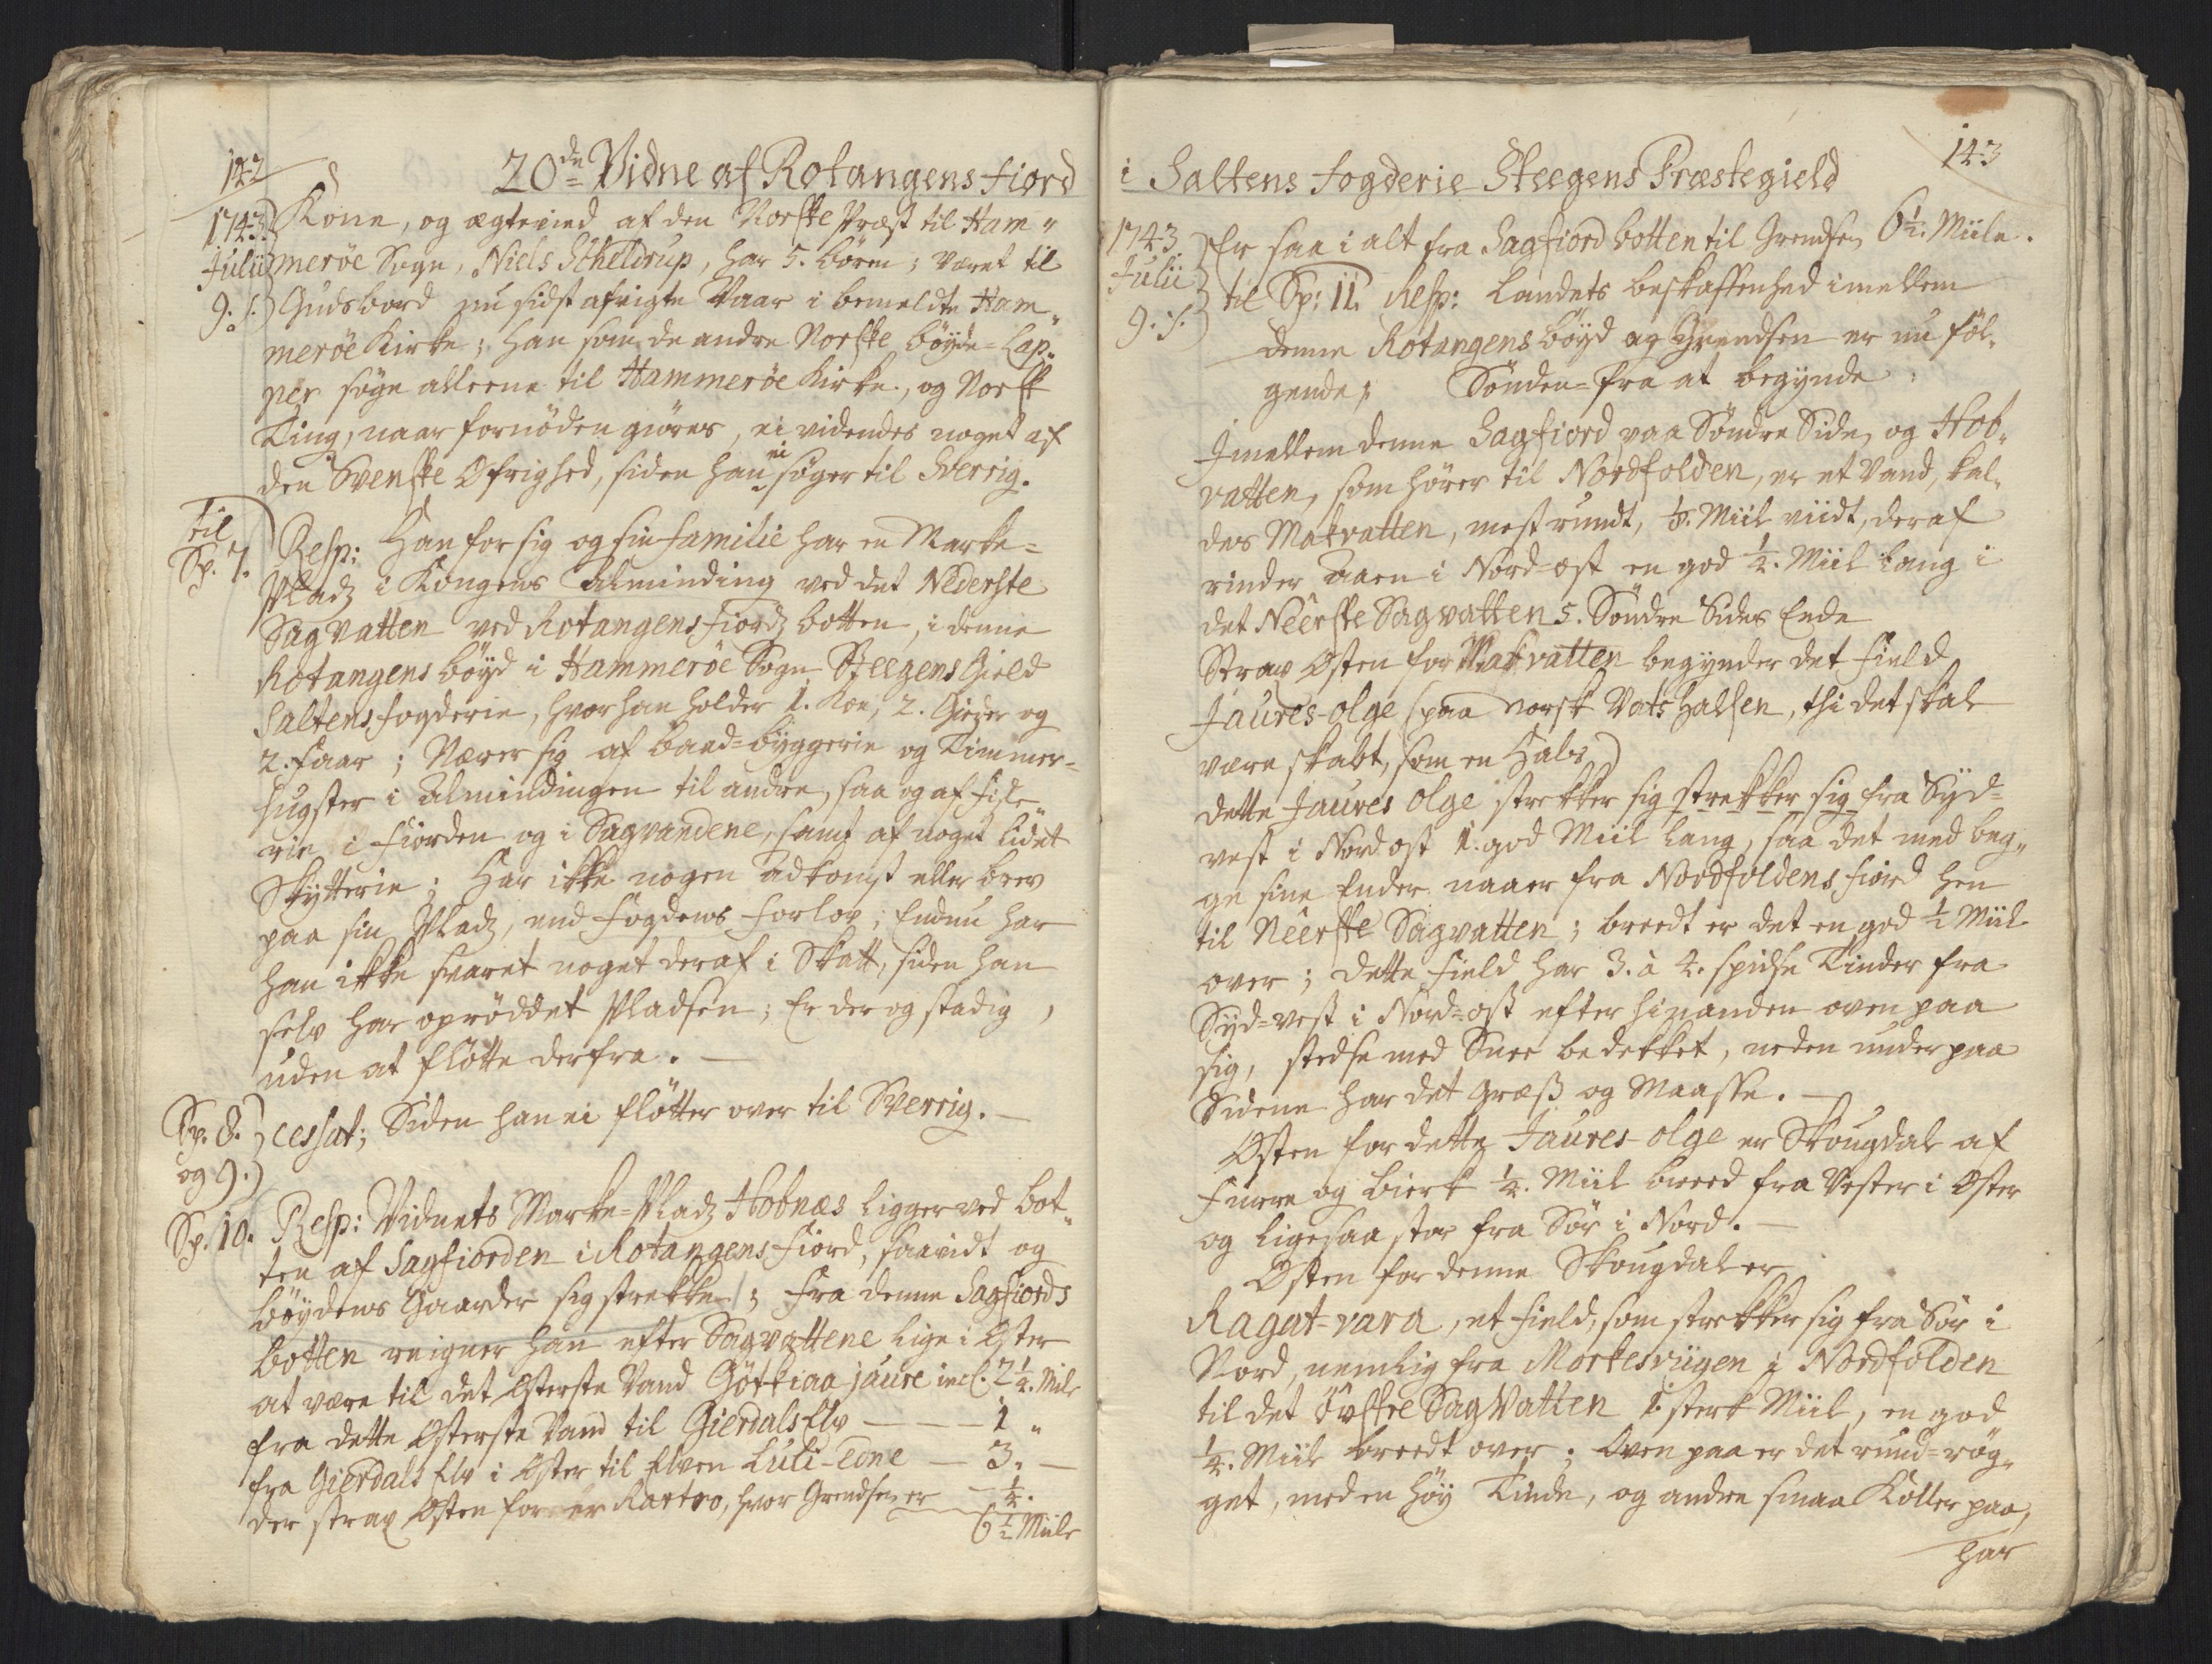 142
20de Vidne af Rotangens fiord
1743
Julii
9. s.
Kone, og ægtevied af den Norske Præst til Ham„
merøe Sogn, Niels Scheldrup, har 5. børn; været til
Gudsbord nu sidst afvigte Vaar i bemeldte Ham„
merøe Kirke; Han som de andre Norske bøyde-Lap„
per søge alleene til Hammerøe Kirke, og Norsk
Ting, naar fornøden giøres, ei videndes noget af
den Svenske Øfrighed, siden han ei søger til Sverrig.
til
Sp. 7.
Resp: Han for sig og sin familie har en Marke-
Pladz i Kongens Alminding ved det Nederste
Sagvatten ved Rotangens fiordz botten, i denne
Rotangens bøyd i Hammerøe Sogn Steegens Gield
Saltens fogderie, hvor han holder 1. Koe, 2. Gieder og
2. faar; Nærer sig af baad-byggerie og Timmer-
hugster i Almindingen til andre, saa og af fiske„
rie i fiorden og i Sagvandene, samt af noget lidet
Skytterie; Har ikke nogen adkomst eller brev
paa sin Pladz, end fogdens forlov; Endnu har
han ikke svaret noget deraf i Skatt, siden han
selv har oprøddet Pladsen; Er der og stadig,
uden at fløtte derfra. —
Sp. 8.
og 9.
cessat; Siden han ei fløtter over til Sverrig. —
Sp. 10.
Resp: Vidnets Marke-Pladz Hobnæs ligger ved bot„
ten af Sagfiorden i Rotangens fiord, saavidt og
bøydens Gaarder sig strekker; Fra denne Sagfiords
botten reigner han efter Sagvattene lige i Øster
at være til det Østerste Vand Gøtkiaa jaure incl. 2 1/4. Mile
fra dette Østerste Vand til Gierdals Elv — — — 1 „
fra Gierdals Elv i Øster til Elven Luli-edne — 3. —
der strax Østen for er Rartvo, hvor Grendsen er 1/4.
6 1/2 Miile
i Saltens fogderie Steegens Præstegield
143
1743
Julii
9. s.
Er saa i alt fra Sagfiord botten til Grendsen 6 1/2. Miile.
til Sp: 11. Resp: Landets beskaffenhed imellem
denne Rotangens bøyd og Grendsen er nu føl„
gende; Sønden-fra at begynde:
Imellem denne Sagfiord paa Søndre Side, og Hob„
vatten, som hører til Nordfolden, er et Vand, kal„
des Makvatten, mest rundt, 1/8. Miil viidt, deraf
rinder Aaen i Nord-ost en god 1/4. Miil lang i
det Neêrste Sagvatten s. Søndre Sides Ende
Strax Østen for Makvatten begynder det field
Jaures-olge (paa norsk Vats Halsen, thi det skal
være skabt, som en Hals)
dette Jaures olge strekker sig strekker sig fra Syd-
vest i Nordost 1. god Miil lang, saa det med beg„
ge sine Ender naaer fra Nordfoldens fiord hen
til Neêrste Sagvatten; breedt er det en god 1/4 Miil
over; dette field har 3. à 4. spidse Tinder fra
Syd-vest i Nord-ost efter hinanden oven paa
sig, stedse med Snee bedekket, neden under paa
Sidene har det Græss og Maasse. —
Østen for dette Jaures-olge er Skougdal af
Furre og Bierk 1/4. Miil breed fra Vester i Øster
og ligesaa stor fra Sør i Nord. —
Østen for denne Skougdal er
Ragat-vara, et field, som strekker sig fra Sør i
Nord, nemlig fra Morkesviigen i Nordfolden
til det Øvstre Sagvatten 1. sterk Miil, en god
1/4. Miil breedt over; Oven paa er det rund-røg„
get, med en høy Tinde, og andre smaa Koller paa,
har